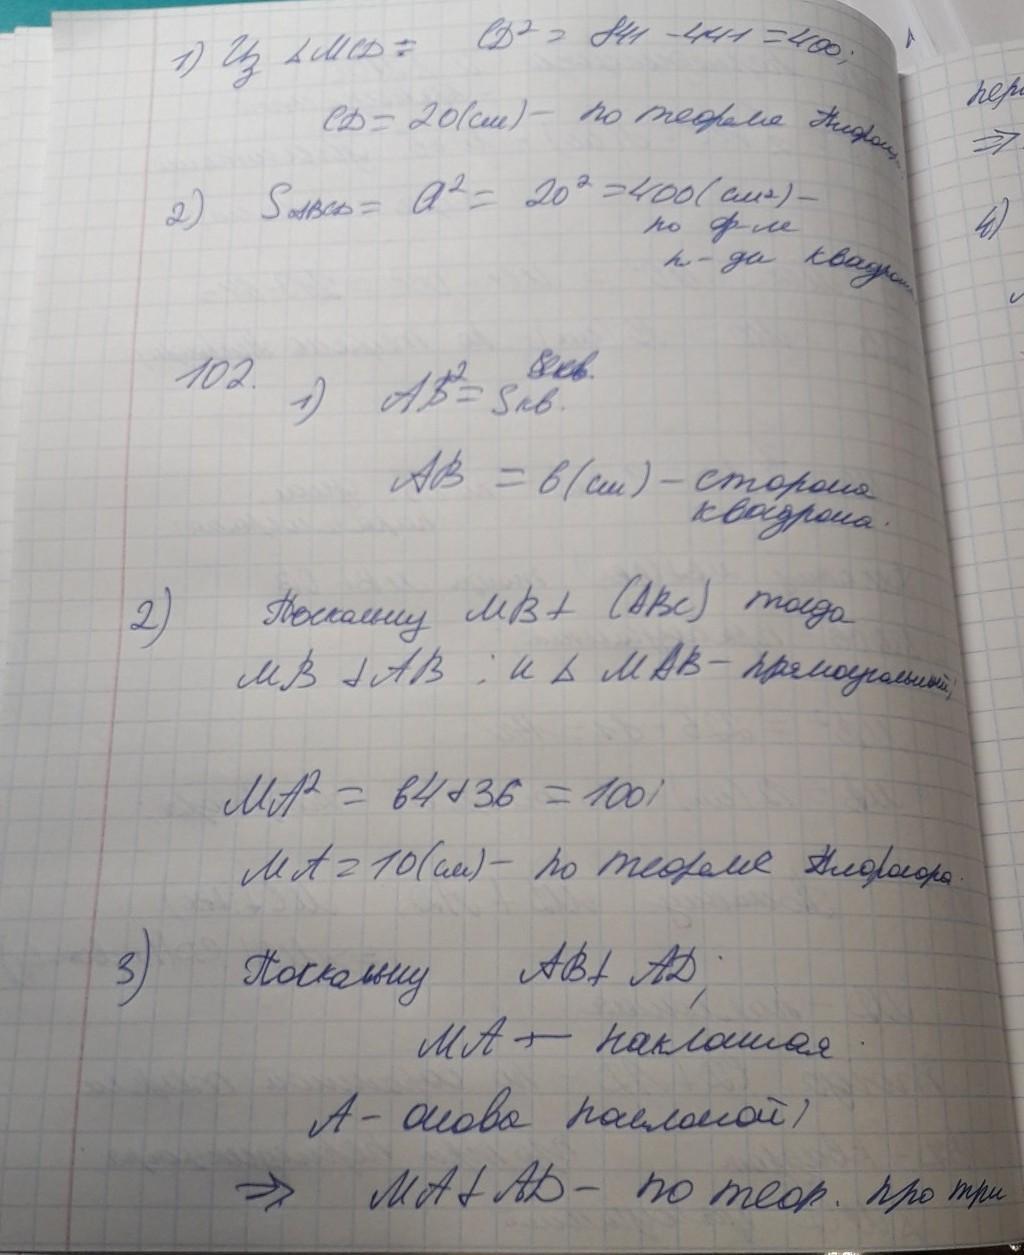 1) Из △MCD: CD² = 841 - 441 = 400;
CD = 20(см) - по теореме Пифагора.
2) SABCD = a² = 20² = 400(см²) -
по ф-ле
п-ди квадрата
102.
1) AB² = Sкв.
AB = 6(см) - сторона
квадрата.
2) Поскольку MB ⊥ (ABC) тогда
MB ⊥ AB; и △ MAB - прямоугольный;
MA² = 64+36 = 100;
MA = 10(см) - по теореме Пифагора.
3) Поскольку AB ⊥ AD;
MA - наклонная
A - основа наклоной;
⇒ MA ⊥ AD - по теор. про три
пер
⇒
4)